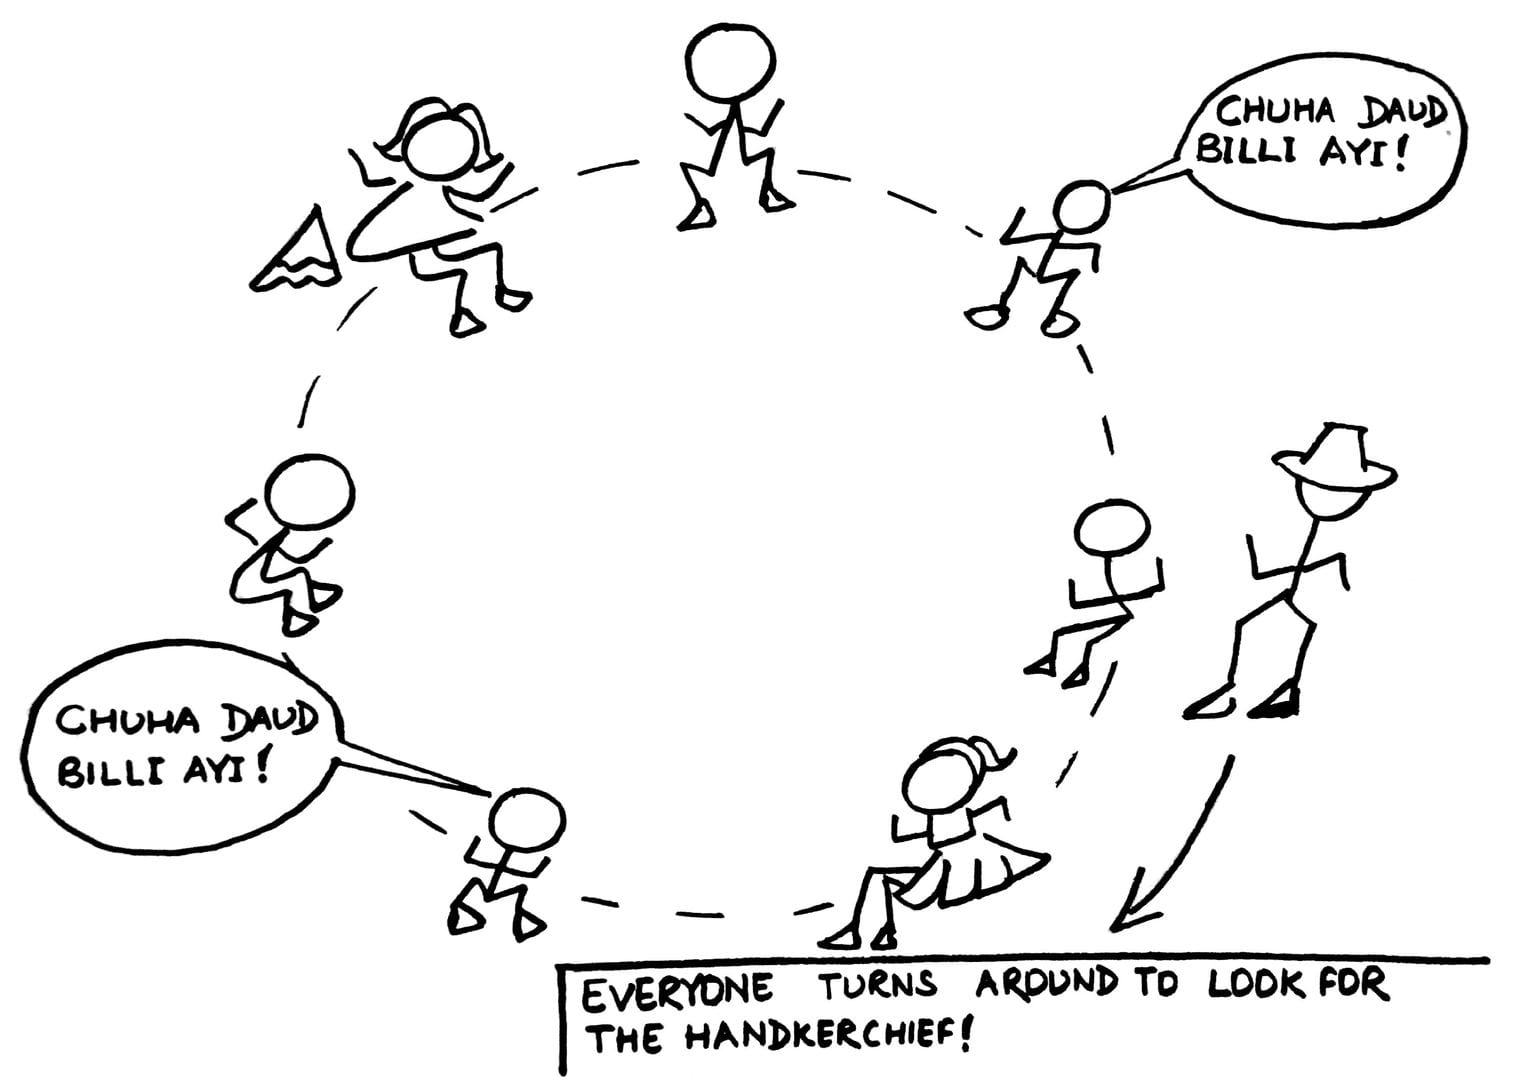 CHUHA DAUD
BILLI AYI!
CHUHA DAUD
BILLI AYI!
EVERYONE TURNS AROUND TO LOOK FOR
THE HANDKERCHIEF!